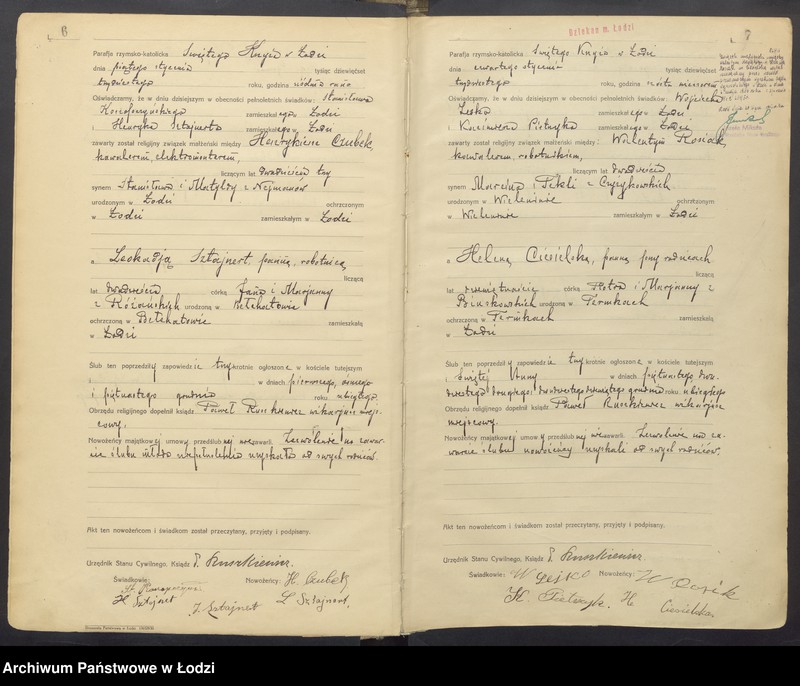 6
Parafja rzymsko-katolicka Świętego Krzyża w Łodzi
dnia piątego stycznia tysiąc dziewięćset
trzydziestego roku, godzina siódma rano
Oświadczamy, że w dniu dzisiejszym w obecności pełnoletnich świadków: Stanisława
zamieszkałego w Łodzi
i Henryka Sztajnerta zamieszkałego w Łodzi
zawarty został religijny związek małżeński między: Henrykiem Czubek,
kawalerem, elektromonterem,
liczącym lat dwadzieścia trzy
synem Stanisława i Matyldy z Nejmanów
urodzonym w Łodzi ochrzczonym
w Łodzi zamieszkałym w Łodzi
a Leokadją Sztajnert, panną, robotnicą
liczącą
lat dwadzieścia córką Jana i Marjanny
z Różańskich urodzoną w Bełchatowie
ochrzczoną w Bełchatowie zamieszkałą
w Łodzi
Ślub ten poprzedziły zapowiedzie trzykrotnie ogłoszone w kościele tutejszym
w dniach pierwszego, ósmego
i piętnastego grudnia roku ubiegłego
Obrzędu religijnego dopełnił ksiądz Paweł wikarjusz miejs-
cowy.
Nowożeńcy majątkowej umowy przedślubnej nie zawarli. Zezwolenie na zawar-
cie ślubu młoda niepełnoletnia uzyskała od swych rodziców.
Akt ten nowożeńcom i świadkom został przeczytany, przyjęty i podpisany.
Urzędnik Stanu Cywilnego, Ksiądz P.
Świadkowie: Nowożeńcy: H. Czubek
H. Sztajnet J. Sztajnet L. Sztajnert.
Drukarnia Państwowa w Łodzi
7
Odziałem m. Łodzi
Parafja rzymsko-katolicka Świętego Krzyża w Łodzi
dnia czwartego stycznia tysiąc dziewięćset
trzydziestego roku, godzina szósta wieczorem
Oświadczamy, że w dniu dzisiejszym w obecności pełnoletnich świadków: Wojciecha
Leśko zamieszkałego w Łodzi
i Kazimierza Pietrzyka zamieszkałego w Łodzi
zawarty został religijny związek małżeński między: Walentym Rosiak,
kawalerem, robotnikiem,
liczącym lat dwadzieścia
synem Marcina i Tekli z
urodzonym w Wieleninie ochrzczonym
w Wieleninie zamieszkałym w Łodzi
a Heleną Ciesielską, panną, przy rodzicach
liczącą
lat dziewiętnaście córką Piotra i Marjanny z
urodzoną w
ochrzczoną w zamieszkałą
w Łodzi
Ślub ten poprzedziły zapowiedzie trzykrotnie ogłoszone w kościele tutejszym
i Świętej Anny w dniach piętnastego dwu-
dziestego drugiego i dwudziestego dziewiątego grudnia roku ubiegłego
Obrzędu religijnego dopełnił ksiądz Paweł wikarjusz
miejscowy.
Nowożeńcy majątkowej umowy przedślubnej nie zawarli. Zezwolenie na za-
warcie ślubu nowożeńcy uzyskali od swych rodziców.
Akt ten nowożeńcom i świadkom został przeczytany, przyjęty i podpisany.
Urzędnik Stanu Cywilnego, Ksiądz P.
Świadkowie: W Leśko Nowożeńcy: W Rosiak
K. Pietrzyk H Ciesielska.
Archiwum Państwowe w Łodzi